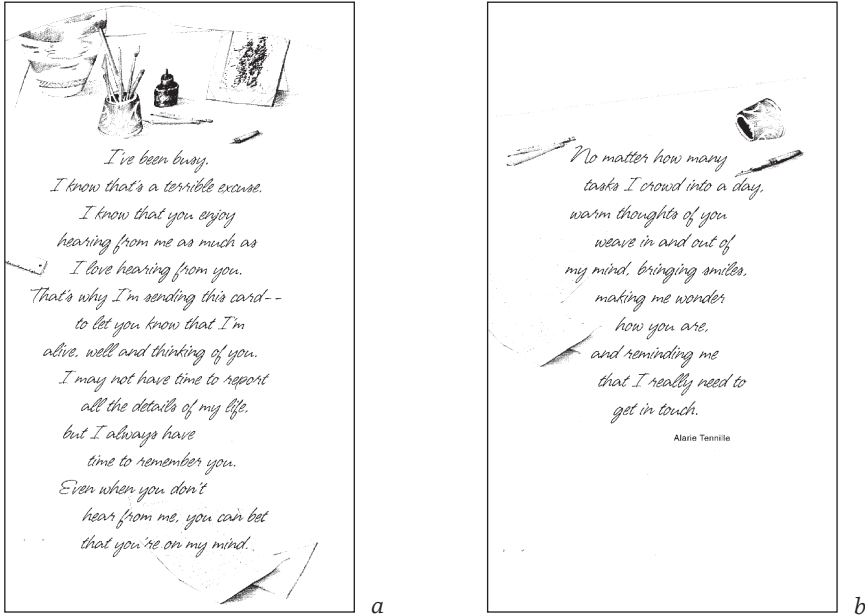 I've been busy.
I know that's a terrible excuse.
I know that you enjoy
hearing from me as much as
I love hearing from you.
That's why I'm sending this card--
to let you know that I'm
alive, well and thinking of you.
I may not have time to report
all the details of my life,
but I always have
time to remember you.
Even when you don't
hear from me, you can bet
that you're on my mind.
a
No matter how many
tasks I crowd into a day,
warm thoughts of you
weave in and out of
my mind, bringing smiles,
making me wonder
how you are,
and reminding me
that I really need to
get in touch.
Alarie Tennille
b